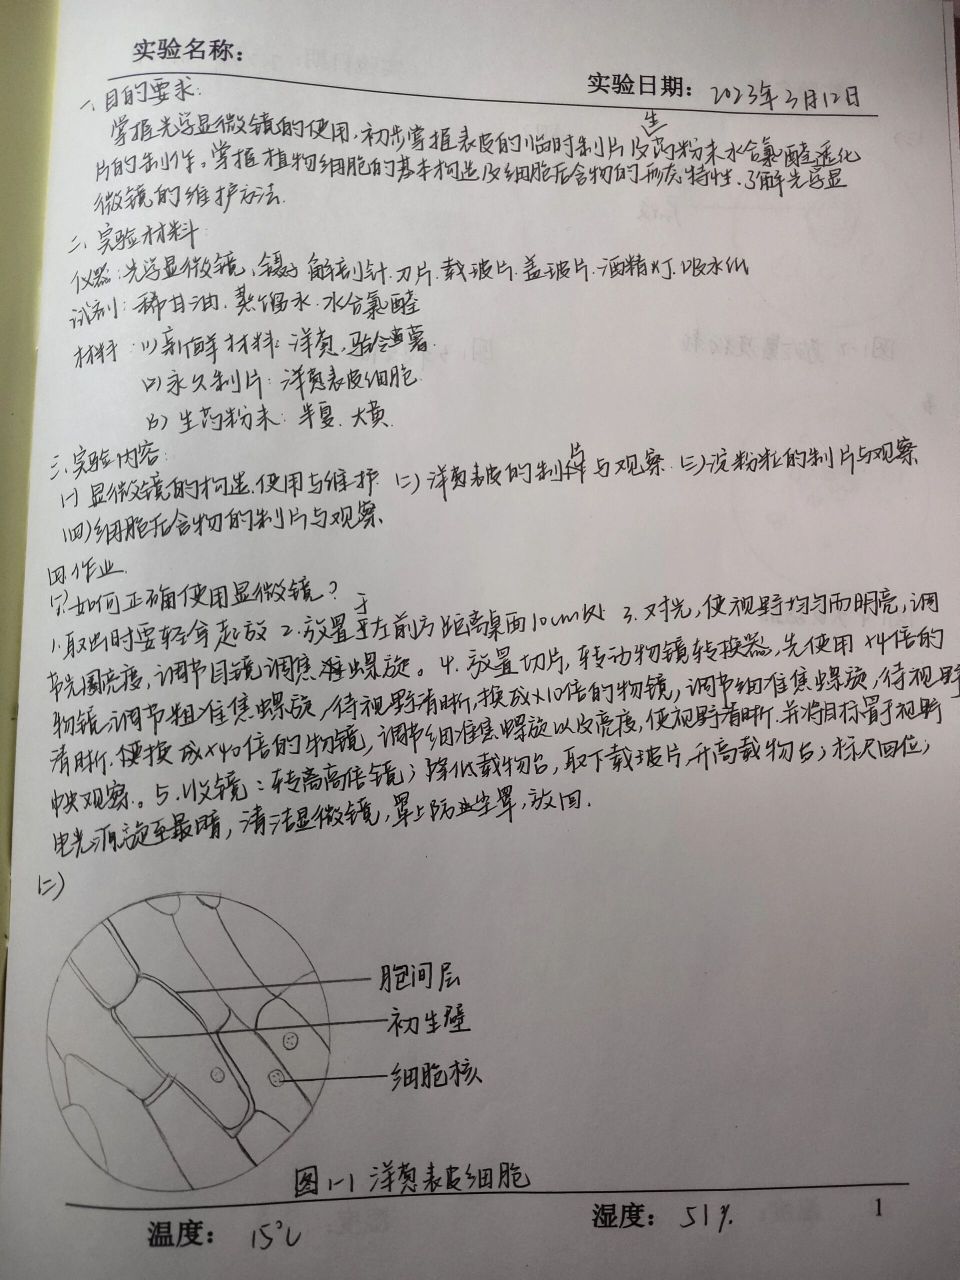 实验名称：
实验日期：2023年3月12日
一、目的要求：
掌握光学显微镜的使用、初步掌握表皮的临时制片及生药粉末水合氯醛透化
片的制作。掌握植物细胞的基本构造及细胞后含物的形态特性、了解光学显
微镜的维护方法.
二、实验材料
仪器：光学显微镜、镊子、解剖针、刀片、载玻片、盖玻片、酒精灯、吸水纸
试剂：稀甘油、蒸馏水、水合氯醛
材料：(1)新鲜材料：洋葱、马铃薯.
(2)永久制片：洋葱表皮细胞.
(3)生药粉末：半夏、大黄.
三、实验内容：
(一)显微镜的构造、使用与维护 (二)洋葱表皮的制片与观察 (三)淀粉粒的制片与观察
(四)细胞后含物的制片与观察、
四、作业
如何正确使用显微镜？
1.取出时要轻拿起放 2.放置于左前方距离桌面10cm处 3.对光，使视野均匀而明亮，调
节光圈亮度，调节目镜调焦螺旋。4.放置切片，转动物镜转换器，先使用×4倍的
物镜，调节粗准焦螺旋，待视野清晰，换成×10倍的物镜，调节细准焦螺旋，待视野
清晰，便换成×40倍的物镜，调节细准焦螺旋以及亮度，使视野清晰.并将目标置于视野
中央观察。5.收镜：转离高倍镜；降低载物台，取下载玻片，升高载物台；标尺回位；
电光源旋至最暗，清洁显微镜，罩上防尘罩，放回.
(二)
胞间层
初生壁
细胞核
图1-1 洋葱表皮细胞
温度：15℃
湿度：51%
1